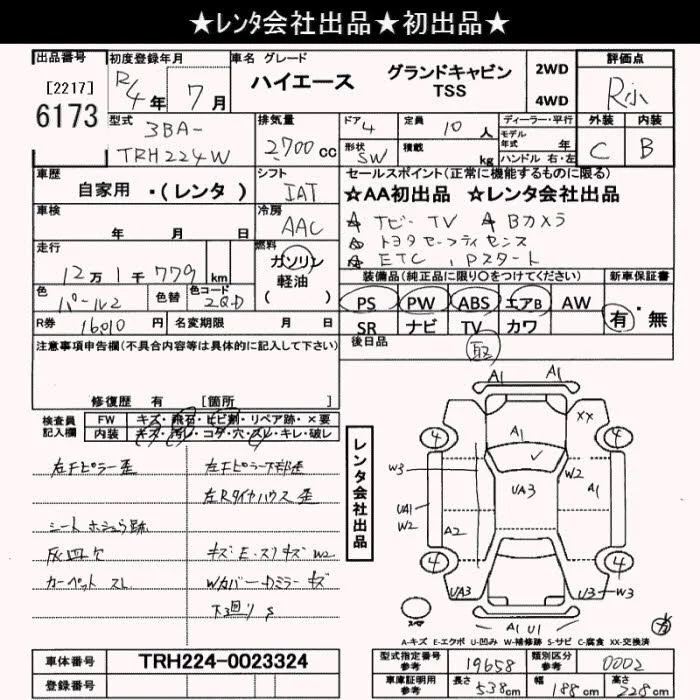 ★レンタ会社出品★初出品★
出品番号
[2217]
6173
初度登録年月
R4年 7月
車名 グレード
ハイエース グランドキャビン
TSS
2WD
4WD
評価点
R小
外装 内装
C B
型式
3BA-
TRH224W
排気量
2,700cc
ドア 4
定員 10人
形状 SW
積載 kg
ディーラー・平行
モデル年式 年
ハンドル 右・左
車歴
自家用 ・(レンタ )
シフト
IAT
セールスポイント(正常に機能するものに限る)
★AA初出品 ☆レンタ会社出品
☆ナビーTV ☆Bカメラ
☆トヨタセーフティセンス
☆ETC , Pスタート
車検
年 月 日
冷房
AAC
走行
12万1千779km
燃料
ガソリン
軽油
( )
色
パール2
色替
色コード
2QD
装備品(純正品に限り○をつけてください)
PS PW ABS エアB AW
SR ナビ TV カワ
新車保証書
有・無
R券 16010円
名変期限 月 日
後日品
取
注意事項申告欄(不具合内容等は具体的に記入して下さい)
修復歴 有 [箇所 ]
検査員
記入欄
FW キズ・飛石・ヒビ割・リペア跡・×要
内装 キズ・汚レ・コゲ・穴・スレ・キレ・破レ
左Fピラー歪 左Fピラー下部歪
左Rタイヤハウス歪
シート ホシュウ跡
灰皿欠 キズ・E・スリキズ W2
カーペット スレ Wカバー・Dミラーキズ
下廻り S
レンタ会社出品
A1 A1
XX
4 4
A1
W3
W2
UA3
A1
UA1
W2
A2
4 4
UA3
U3 W3
A1 U1
A-キズ E-エクボ U-凹み W-補修跡 S-サビ C-腐食 XX-交換済
車体番号 TRH224-0023324
登録番号
型式指定番号
参考
19658
類別区分
参考
0002
車庫証明用
参考
長さ 538cm
幅 188cm
高さ 228cm